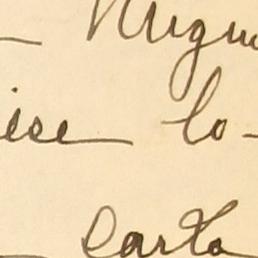 — Nugu
ise — lo-
— Carta